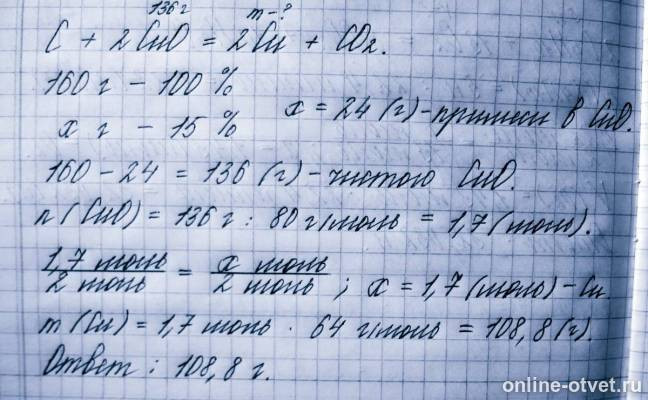 136 г m-?
C + 2CuO = 2Cu + CO2.
160 г - 100 %
x г - 15 %
x = 24 (г) - примеси в CuO.
160 - 24 = 136 (г) - чистого CuO.
n (CuO) = 136 г : 80 г/моль = 1,7 (моль).
1,7 моль / 2 моль = x моль / 2 моль ; x = 1,7 (моль) - Cu.
m (Cu) = 1,7 моль · 64 г/моль = 108,8 (г).
Ответ : 108,8 г.
online-otvet.ru